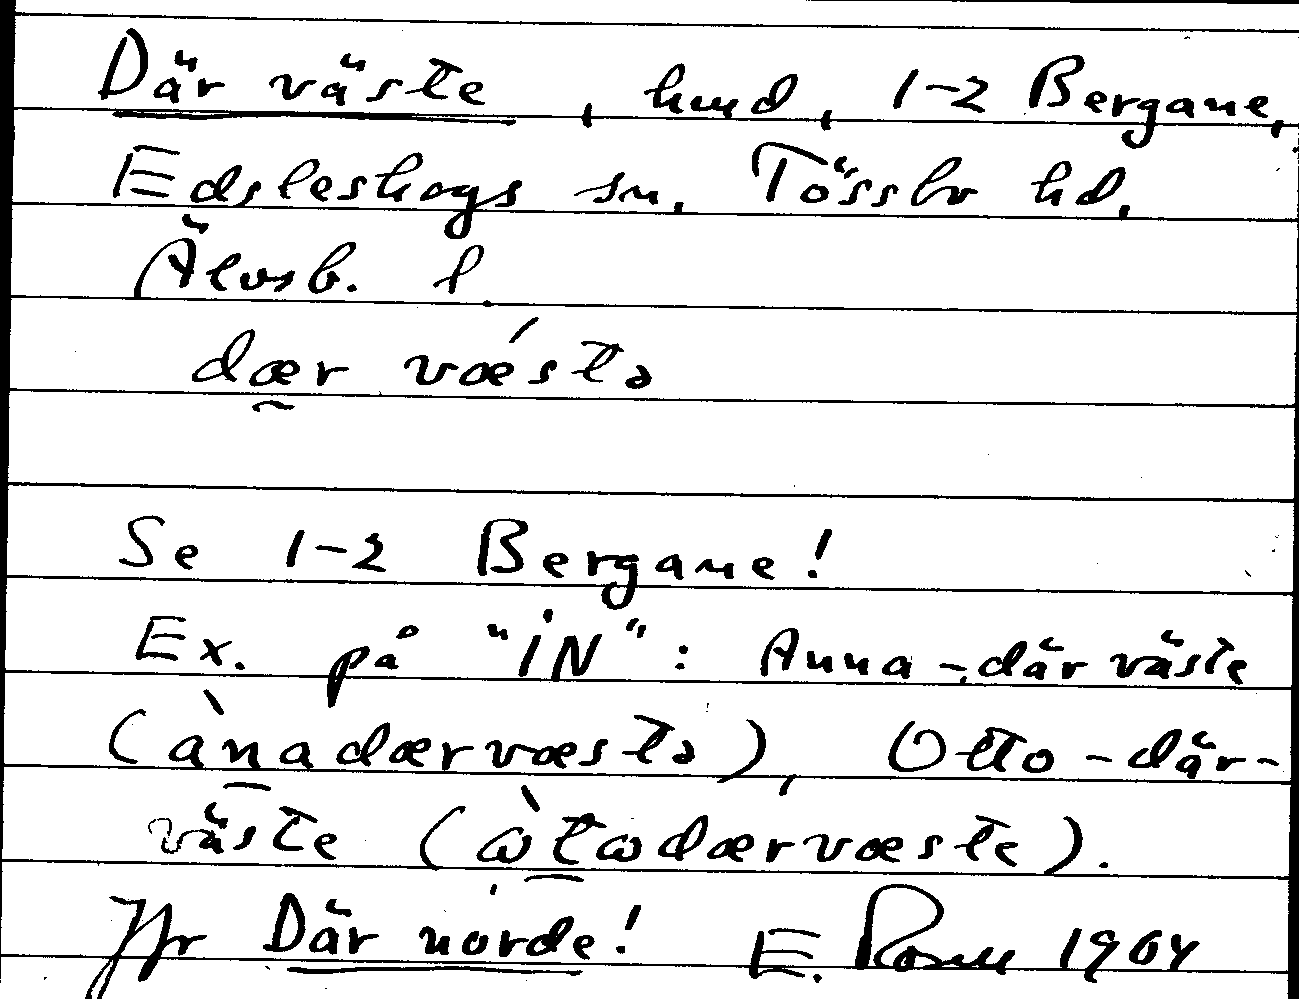 Där väste, hmd, 1-2 Bergane,
Edsleskogs sn. Tössbo hd.
Älvsb. l.
dær vǽstə
Se 1-2 Bergane!
Ex. på "IN": Anna-där väste
(ànadærvæstə), Otto-där-
väste (ὼtωdærvæste).
Jfr Där nórde! E. 1964